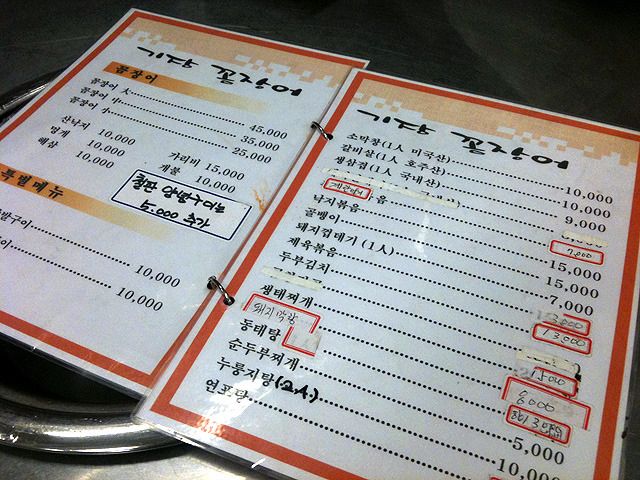 기장 꼼장어
꼼장어
꼼장어 大 45,000
꼼장어 中 35,000
꼼장어 小 25,000
산낙지 10,000 가리비 15,000
멍게 10,000 개불 10,000
해삼 10,000
특별메뉴
5.000 추가
10,000
10,000
기장 꼼장어
소막창(1人 미국산) 10,000
갈비살(1人 호주산) 10,000
생삼겹(1人 국내산) 9,000
7,000
낙지볶음 15,000
골뱅이 15,000
돼지껍데기 (1人) 7,000
제육볶음 13,000
두부김치 13,000
생태찌개 15,000
8000
동태탕
순두부찌개 5,000
누룽지탕(2人) 10,000
연포탕